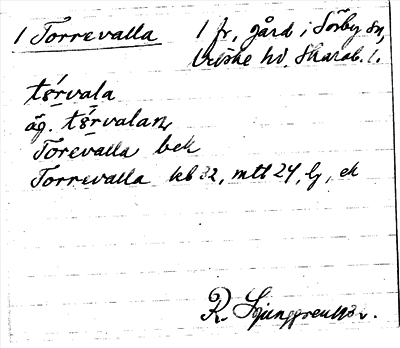 1 Torrevalla 1 fr, gård i Sörby sn,
Vilske hd. Skarab. l.
tɤ́rvala
äg. tɤ́rvalan
Torevalla bek
Torrevalla kb 32, mtl 24, lj, ek
R. Ljunggren 1932.